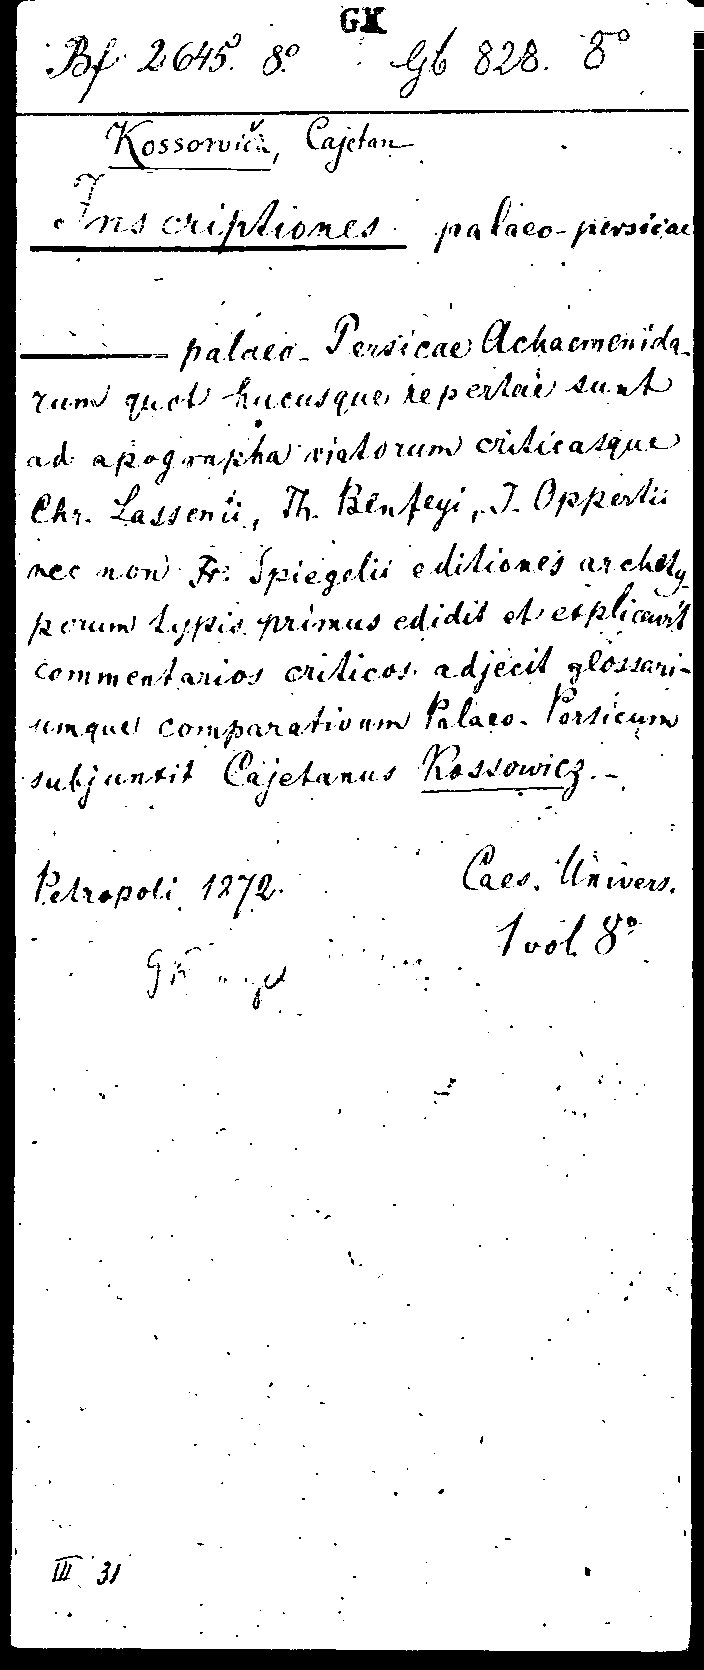 GK
Bf 2645. 8º. Gb 828. 8º
Kossovič, Cajetan
Inscriptiones palaeo-persicae
palaeo-Persicae Achaemenida-
rum quot hucusque repertae sunt
ad apographa viatorum criticasque
Chr. Lassenii, Th. Benfeyi, J. Oppertii
nec non Fr. Spiegelii editiones archety-
porum typis primus edidit et explicavit
commentarios criticos adjecit glossari-
umque comparativum Palaeo-Persicum
subjunxit Cajetanus Kossowicz.-
Petropoli 1872. Caes. Univers.
1 vol 8º
III 31